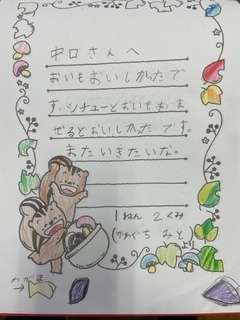 中口さんへ
おいもおいしかったで
す。シチューとおいもおま
ぜるとおいしかったです。
またいきたいな。
1ねん2くみ
(かわぐちみと)